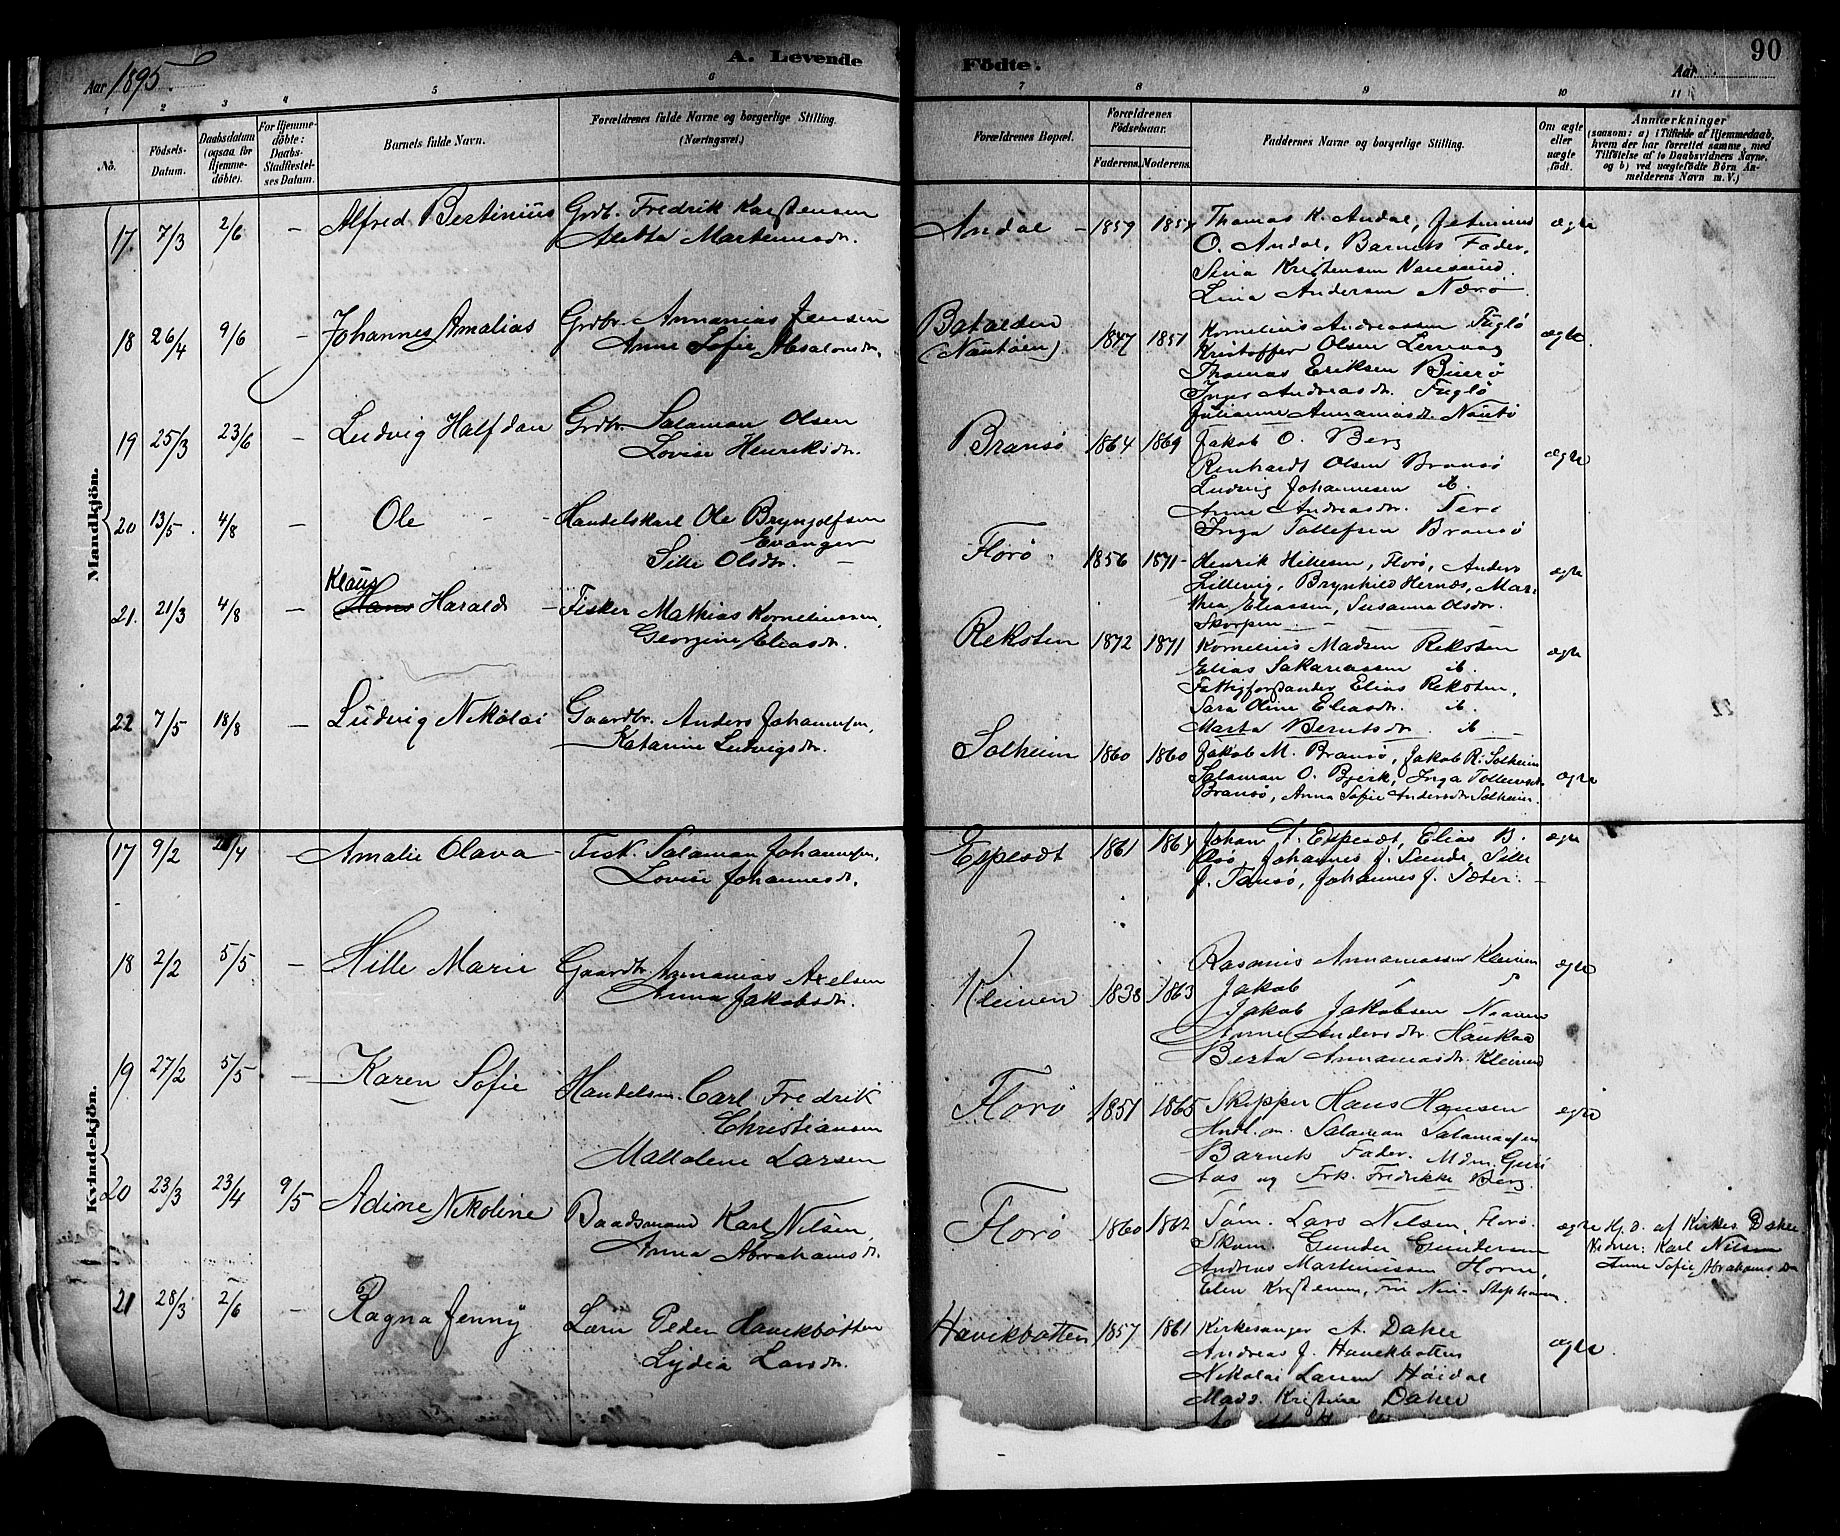 Aar 1895
A. Levende
Födte.
Aar
90
1 2 3 4 5 6 7 8 9 10 11
No.
Födsels-Datum.
Daabsdatum (ogsaa for Hjemme-döbte).
For Hjemme-döbte: Daabs-Stadfæstel-ses Datum.
Barnets fulde Navn.
Forældrenes fulde Navne og borgerlige Stilling.
(Næringsvei.)
Forældrenes Bopæl.
Forældrenes Födselsaar.
Faderens. Moderens.
Faddernes Navne og borgerlige Stilling.
Om ægte eller uægte födt.
Anmærkninger
(saasom: a) i Tilfælde af Hjemmedaab, hvem der har forrettet samme, med Tilföielse af to Daabsvidners Navne, og b) ved uægtefödte Börn An-melderens Navn m. V.)
Mandkjön.
17. 7/3 2/6 – Alfred Bertinius Grdb. Fredrik Karstensen
Aletta Martenusdr.
Andal – 1859 1857 Thomas K. Andal, Jetmund
O. Andal, Barnets Fader,
Sina Kristensen
Lina Andersen Nærø
ægte
18 26/4 9/6 – Johannes Amalias Grdbr. Annanias Jensen
Anne Sofie Absalonsdr.
Batalden
(Nautøen) 1847 1851 Kornelius Andreassen Fuglø
Kristoffer Olsen
Thomas Eriksen Buerø
Inger Andreasdr. Fuglø
Julianne Annaniasdr. Nautø
ægte.
19 25/3 23/6 – Ludvig Halfdan Grdbr. Salaman Olsen
Lovise Henriksdr.
Bransø 1864 1869 Jakob O. Berg
Reinhardt Olsen Bransø
Ludvig Johannesen ib.
Anne Andreasdr.
Inga Tollefsen Bransø
ægte
20 13/5 4/8 – Ole – Handelskarl Ole Brynjolfsen
Evanger
Sille Olsdtr.
Florø 1856 1871 – Henrik Hillesen, Florø, Anders
Lillevig, Brynhild Hernes, Mar-
thea Eliassen, Susanna Olsdr.
Skorpen
ægte
Klaus
21. 21/3 4/8 – Hans Harald – Fisker Mathias Korneliussen,
Georgine Eliasdr.
Reksten 1872 1871 Kornelius Madsen Reksten
Elias Sakariassen ib.
Fattigforstander Elias Reksten,
Sara Oline Eliasdr. ib.
Marta Berntsdr. ib
ægte
22 7/5 18/8 – Ludvig Nikolai Gaardbr. Anders Johannesen,
Katarine Ludvigsdr.
Solheim 1860 1860 Jakob M. Bransø, Jakob R. Solheim
Salaman O. Bjerk, Inga Tollevsdr.
Bransø, Anna Sofie Andersdr. Solheim.
ægte
Kvindekjön.
17 9/2 /4 – Amalie Olava – Fisk. Salaman Johannesen,
Lovise Johannesdr.
Espesdt 1861 1864 Johan T. Espesdt, Elias B.
Johannes J. Sunde, Sille
J. Tansø, Johannes J. Sæter.
ægte
18 2/2 5/5 – Hille Marie Gaardbr. Annanias Axelsen
Anna Jakobsdr.
Kleiven 1838 1863 Rasmus Annaniassen Kleiven
Jakob
Jakob Jakobsen
Anne Andersdtr. Haukaa
Berta Annaniasdr. Kleiven
ægte
19 27/2 5/5 – Karen Sofie Handelsm. Carl Fredrik
Christiansen
Mattalene Larsen
Florø 1851 1865 Skipper Hans Hansen
Hndl.m. Salaman Salamonsen
Barnets Fader, Mdm. Guri
Aas og Frk. Fredrikke Berg.
ægte
20 23/3 23/4 9/5 Adine Nikoline Baadsmand Karl Nilsen,
Anna Abrahamsdr.
Florø 1860 1862 Tøm. Lars Nilsen, Florø.
Skom. Gunder Gundersen
Andreas Martenussen Horne,
Elen Kristensen, Fru Nin. Stephansen.
ægte Hj. d. af Kirkes. Daher
Vidner: Karl Nilsen
Anne Sofie Abrahamsdr
21 28/3 2/6 – Ragna Jenny Lærer Peder Havikbotten
Lydia Larsdr.
Havikbotten 1857 1861 Kirkesanger A. Daher
Andreas J. Havikbotten
Nikolai Larsen Høidal
Mad. Kristine Daher
ægte.